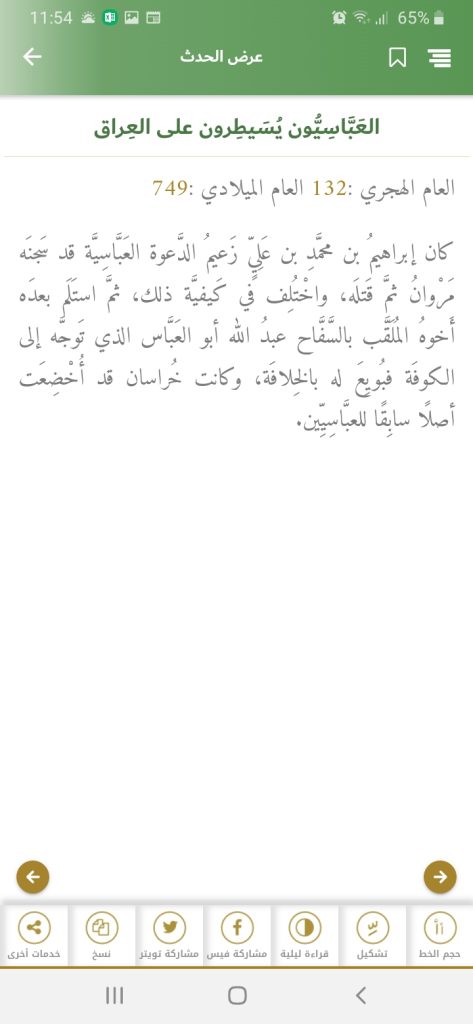 11:54 65%
عرض الحدث
العَبَّاسِيُّون يُسَيطِرون على العِراق
العام الهجري :132 العام الميلادي :749
كان إبراهيمُ بن محمَّدِ بن عَلِيٍّ زَعيمُ الدَّعوة العَبَّاسِيَّة قد سَجنَه
مَرْوانُ ثمَّ قتَلَه، واخْتُلِف في كَيفيَّة ذلك، ثمَّ استَلَم بعدَه
أَخوهُ المُلَقَّب بالسَّفَّاح عبدُ الله أبو العَبَّاس الذي تَوجَّه إلى
الكوفَة فبُويِعَ له بالخِلافَة، وكانت خُراسان قد أُخْضِعَت
أصلًا سابِقًا للعبَّاسِيِّين.
حجم الخط
تشكيل
قراءة ليلية
مشاركة فيس
مشاركة تويتر
نسخ
خدمات أخرى